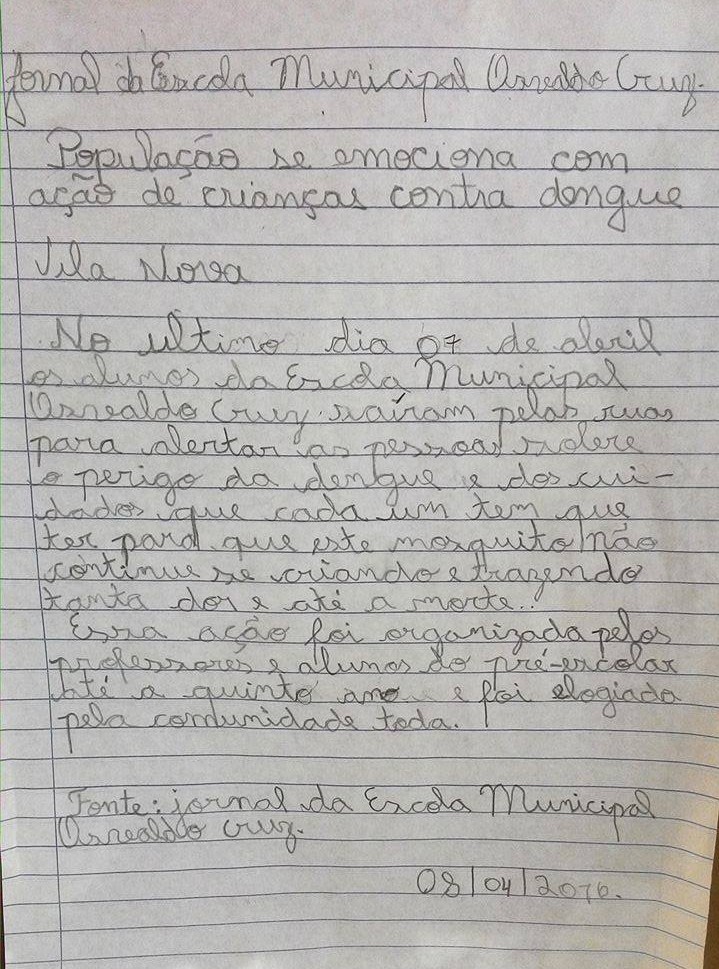 Jornal da Escola Municipal Oswaldo Cruz.
População se emociona com
ação de crianças contra dengue
Vila Nova
No ultimo dia 07 de abril
os alunos da Escola Municipal
Oswaldo Cruz saíram pelas ruas
para alertar as pessoas sobre
o perigo da dengue e dos cui-
dados que cada um tem que
ter para que este mosquito não
continue se criando e trazendo
tanta dor e até a morte...
Essa ação foi organizada pelos
professores e alunos do pré-escolar
até a quinto ano e foi elogiada
pela comunidade toda.
Fonte: jornal da Escola Municipal
Oswaldo Cruz.
08/04/2016.